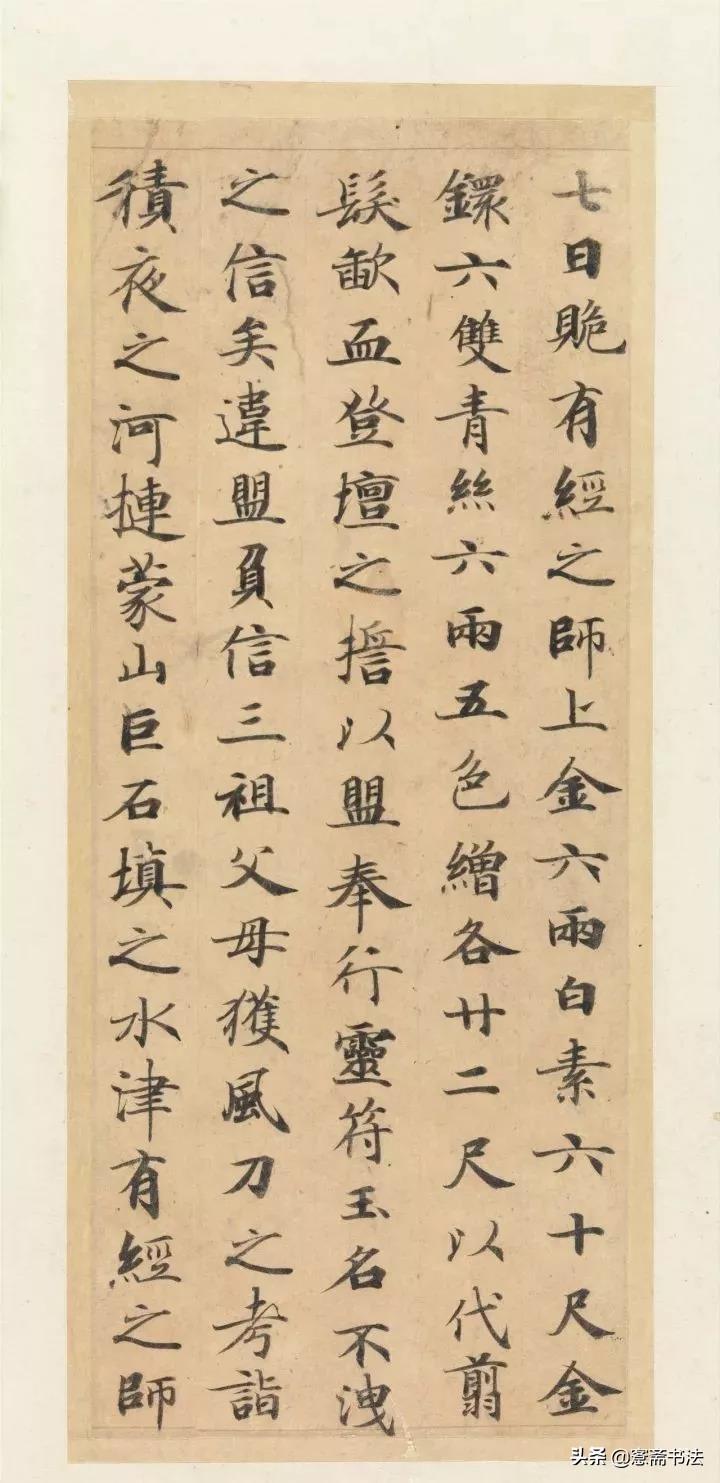 七日貤有經之師上金六兩白素六十尺金
鐶六雙青絲六兩五色繒各廿二尺以代翦
髮歃血登壇之擔以盟奉行靈符玉名不洩
之信矣違盟負信三祖父母獲風刀之考詣
積夜之河摙蒙山巨石填之水津有經之師
头条 @寋斋书法